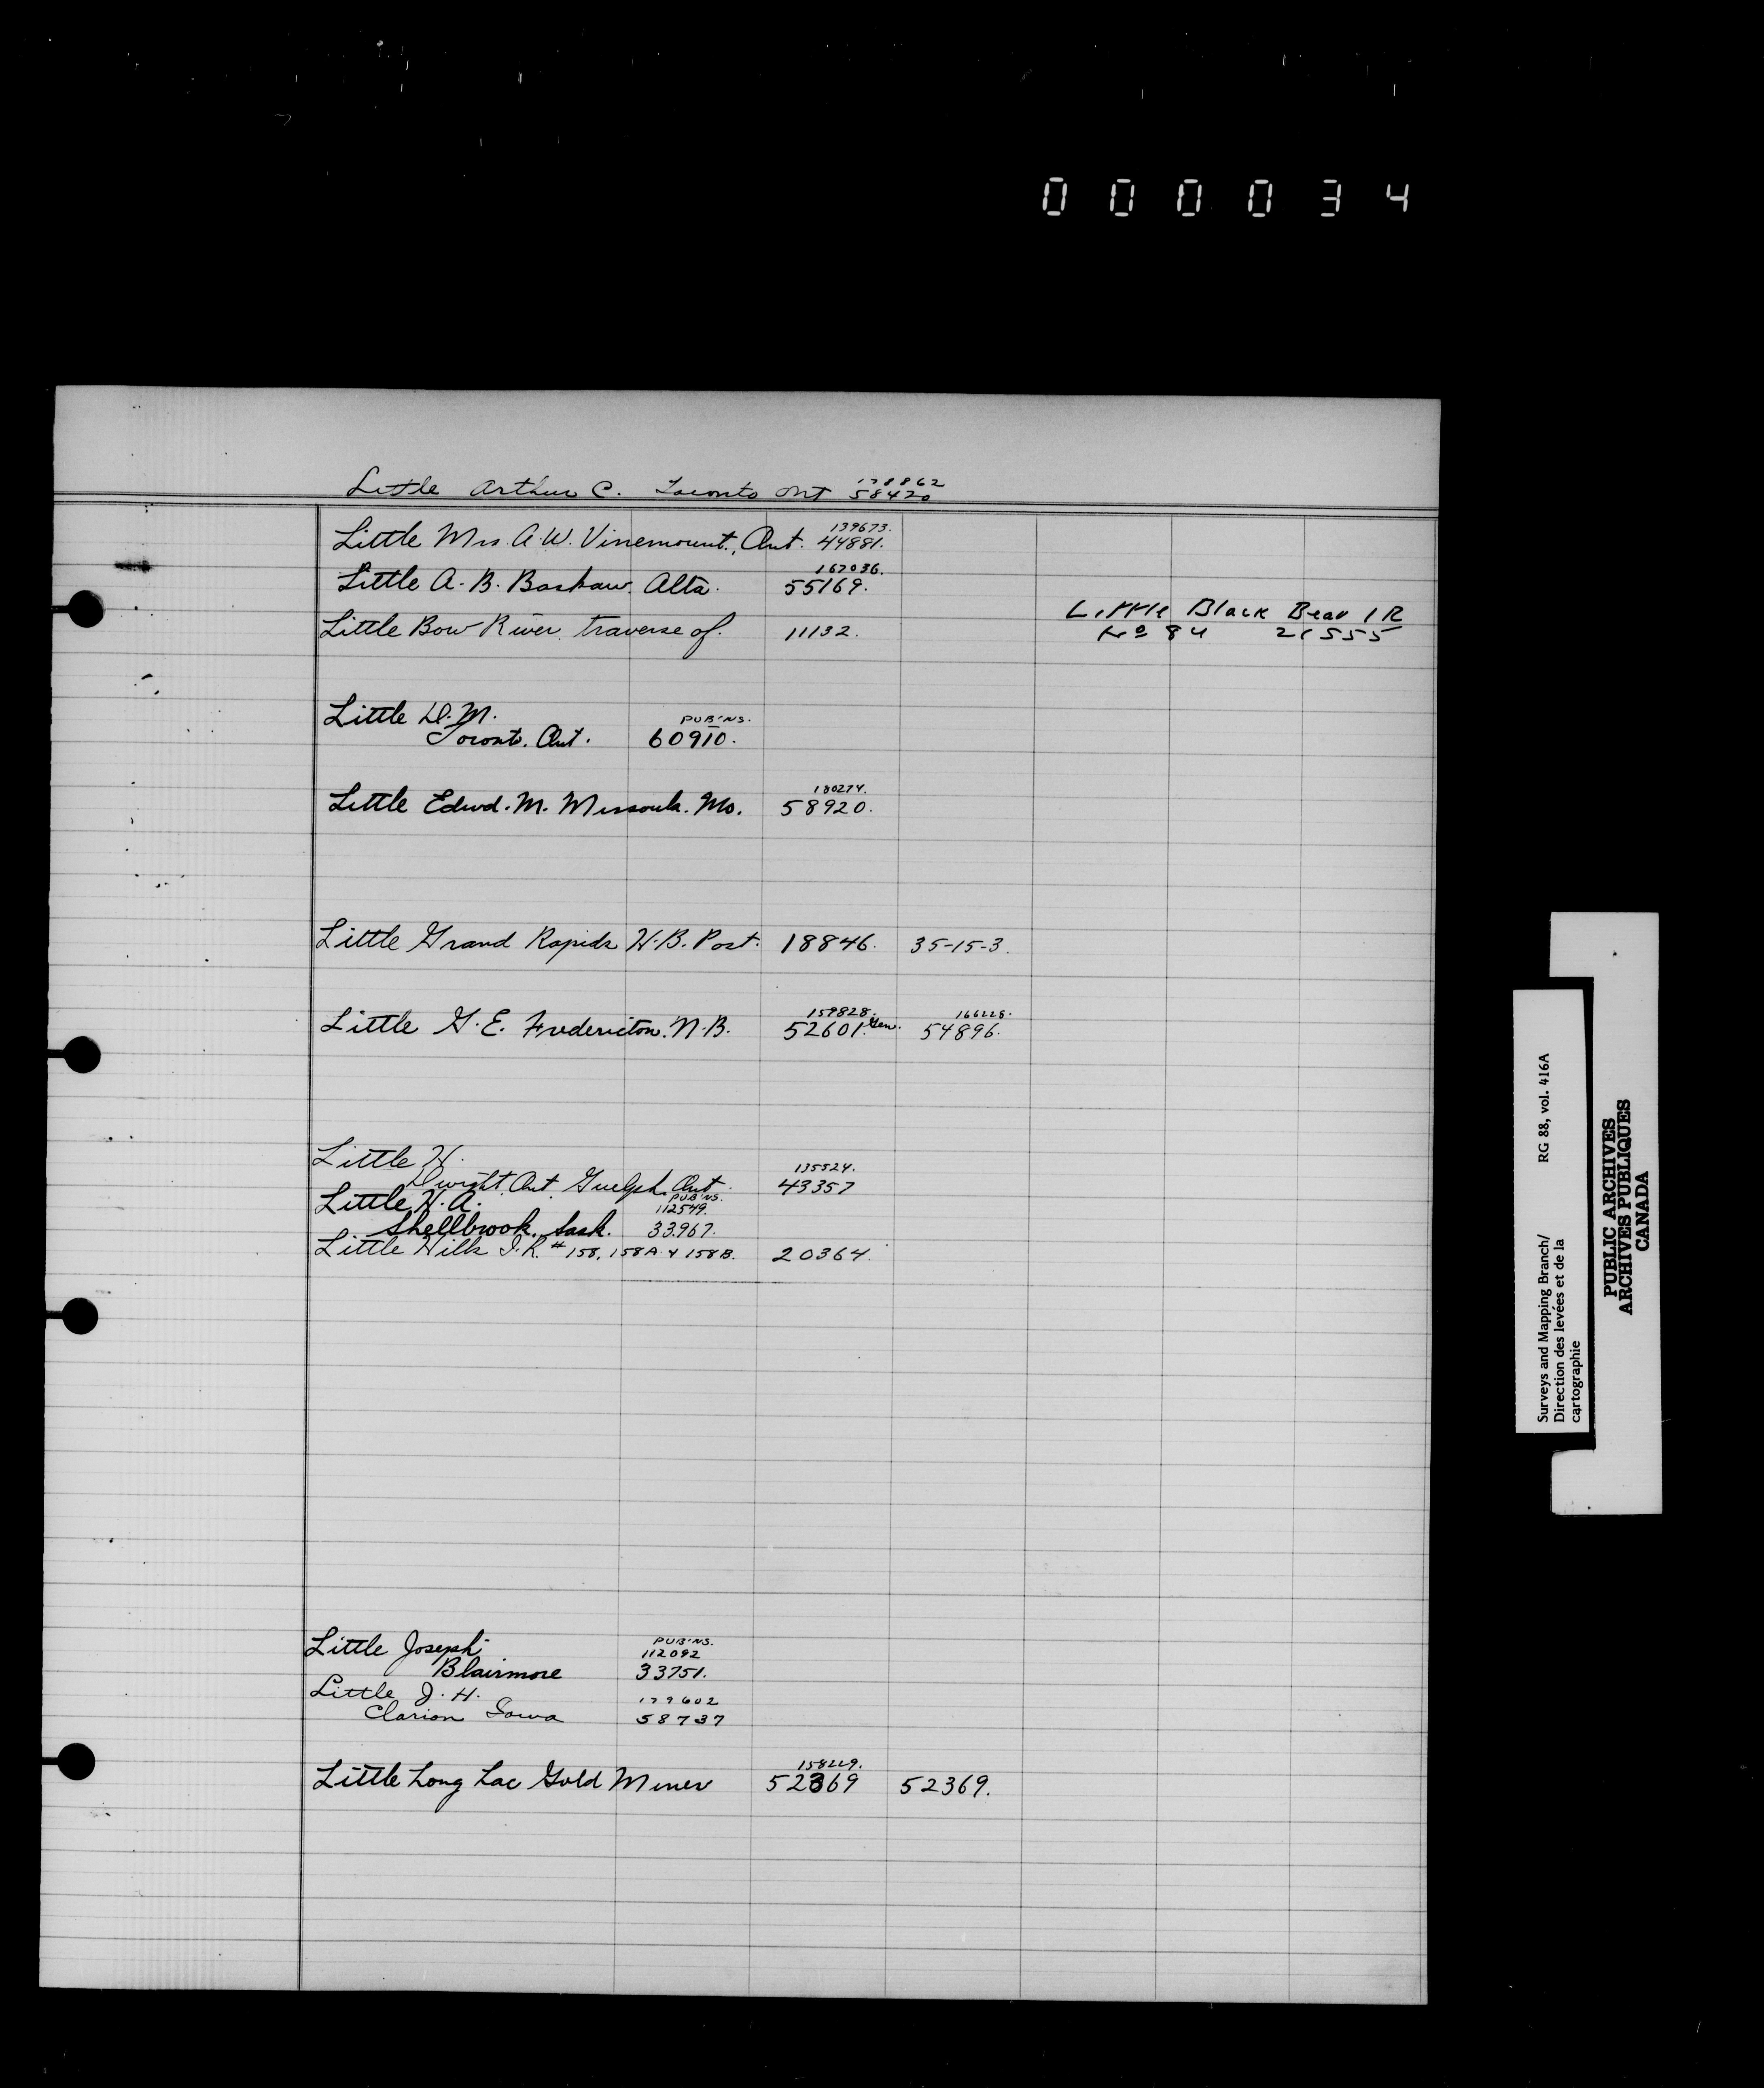 000034
178862
Little Arthur C. Toronto Ont 58420
139673.
Little Mrs. A. W. Vinemount, Ont. 44881.
162036.
Little A. B. Bashaw. Alta. 55169.
Little Black Bear I R
Little Bow River, traverse of. 11132.
No 84 21555
Little D. M. PUB'NS.
Toronto. Ont. 60910.
180274.
Little Edwd. M. Missoula. Mo. 58920.
Little Grand Rapids H. B. Post. 18846. 35-15-3.
159828. 166228.
Little G. E. Fredericton. N. B. 52601. Gen. 54896.
Little H. 135524.
Dwight. Ont. Guelph. Ont. 43357
Little H. A. PUB'NS.
112549.
Shellbrook. Sask. 33967.
Little Hills I. R. # 158, 158A & 158B. 20364.
Little Joseph PUB'NS.
112092
Blairmore 33751.
Little J. H. 179602
Clarion Iowa 58737
158229.
Little Long Lac Gold Mines 52369 52369.
Surveys and Mapping Branch/ RG 88, vol. 416A
Direction des levées et de la
cartographie
PUBLIC ARCHIVES
ARCHIVES PUBLIQUES
CANADA